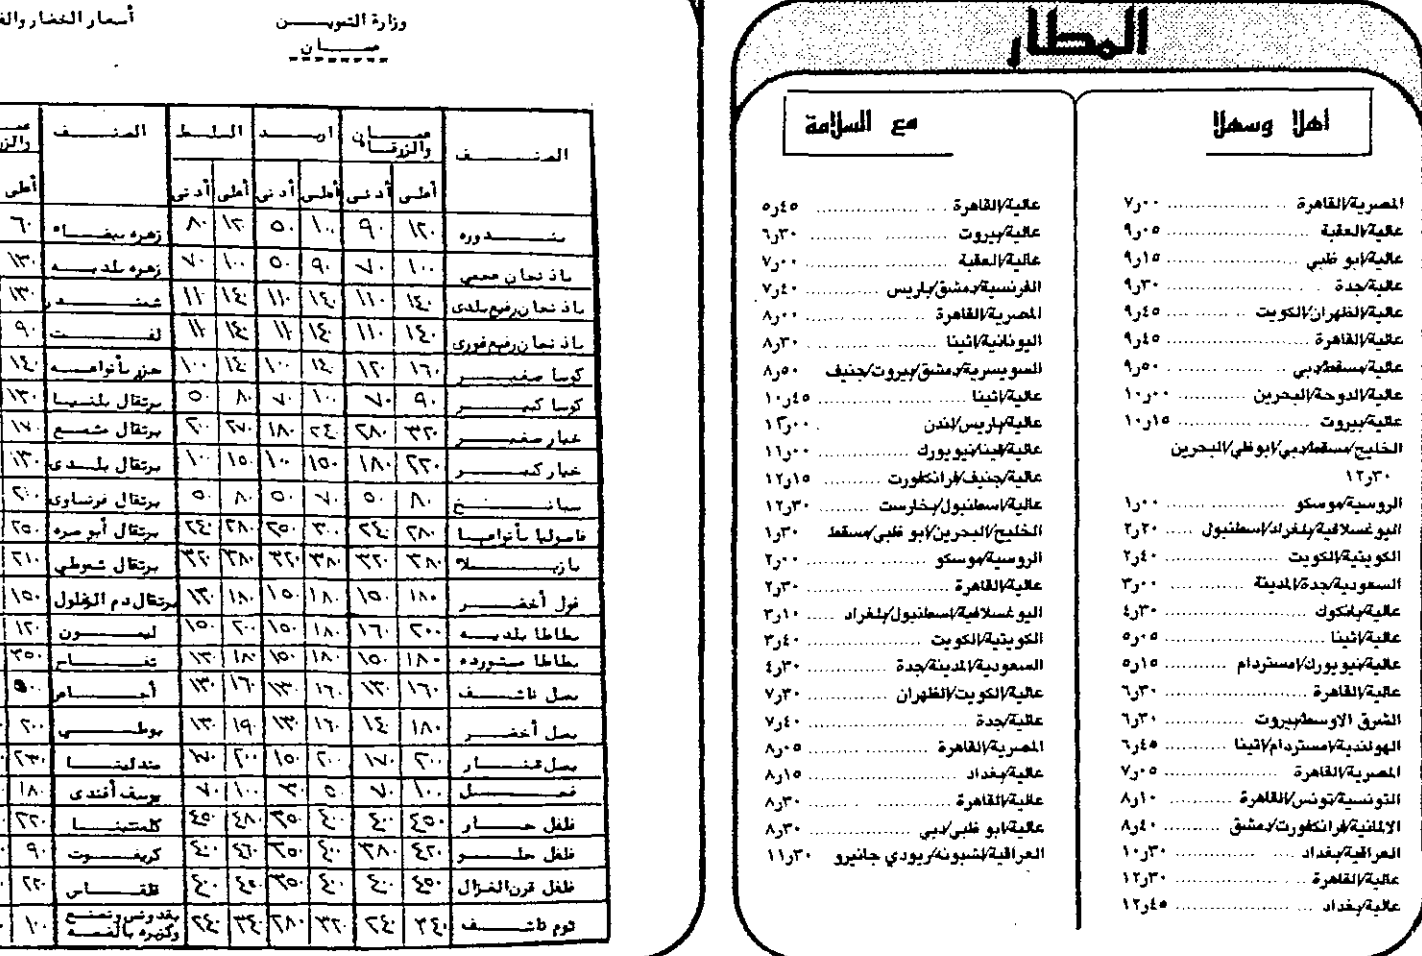 المطار
اهلا وسهلا
المصرية/القاهرة ٠٠ر٧
عالية/العقبة ٠٥ر٩
عالية/ابو ظبي ١٥ر٩
عالية/جدة ٣٠ر٩
عالية/الظهران/الكويت ٤٥ر٩
عالية/القاهرة ٤٥ر٩
عالية/مسقط/دبي ٥٠ر٩
عالية/الدوحة/البحرين ٠٠ر١٠
عالية/بيروت ١٥ر١٠
الخليج/مسقط/دبي/ابوظبي/البحرين
٣٠ر١٢
الروسية/موسكو ٠٠ر١
اليوغسلافية/بلغراد/اسطنبول ٢٠ر٢
الكويتية/الكويت ٤٠ر٢
السعودية/جدة/المدينة ٠٠ر٣
عالية/بانكوك ٣٠ر٤
عالية/اثينا ٠٥ر٥
عالية/نيويورك/امستردام ١٥ر٥
عالية/القاهرة ٣٠ر٦
الشرق الاوسط/بيروت ٣٠ر٦
الهولندية/امستردام/اثينا ٤٥ر٦
المصرية/القاهرة ٠٥ر٧
التونسية/تونس/القاهرة ١٠ر٨
الالمانية/فرانكفورت/دمشق ٤٠ر٨
العراقية/بغداد ٣٠ر١٠
عالية/القاهرة ٣٠ر١٢
عالية/بغداد ٤٥ر١٢
مع السلامة
عالية/القاهرة ٤٥ر٥
عالية/بيروت ٣٠ر٦
عالية/العقبة ٠٠ر٧
الفرنسية/دمشق/باريس ٤٠ر٧
المصرية/القاهرة ٠٠ر٨
اليونانية/اثينا ٣٠ر٨
السويسرية/دمشق/بيروت/جنيف ٥٠ر٨
عالية/اثينا ٤٥ر١٠
عالية/باريس/لندن
عالية/فينا/نيويورك ٠٠ر١١
عالية/جنيف/فرانكفورت ١٥ر١٢
عالية/اسطنبول/بخارست ٣٠ر١٢
الخليج/البحرين/ابو ظبي/مسقط ٣٠ر١
الروسية/موسكو ٠٠ر٢
عالية/القاهرة ٣٠ر٢
اليوغسلافية/اسطنبول/بلغراد ١٠ر٣
الكويتية/الكويت ٤٠ر٣
السعودية/المدينة/جدة ٣٠ر٤
عالية/الكويت/الظهران ٣٠ر٧
عالية/جدة ٤٠ر٧
المصرية/القاهرة ٠٥ر٨
عالية/بغداد ١٥ر٨
عالية/القاهرة ٣٠ر٨
عالية/ابو ظبي/دبي ٣٠ر٨
العراقية/لشبونه/ريودي جانيرو ٣٠ر١١
وزارة التموين
عمان
أسعار الخضار
الصنف عمان والزرقاء اربد السلط الصنف
أعلى أدنى أعلى أدنى أعلى أدنى أعلى
بندوره ١٢٠ ٩٠ ١٠٠ ٥٠ ١٢٠ ٨٠ زهره بيضاء ٦٠
باذنجان عجمي ١٠٠ ٧٠ ٩٠ ٥٠ ١٠٠ ٧٠ زهره بلديه ١٣٠
باذنجان رفيع بلدى ١٤٠ ١١٠ ١٤٠ ١١٠ ١٤٠ ١١٠ شمندر ١٣٠
باذنجان رفيع غورى ١٤٠ ١١٠ ١٤٠ ١١٠ ١٤٠ ١١٠ لفت ٩٠
كوسا صغير ١٦٠ ١٢٠ ١٤٠ ١٠٠ ١٤٠ ١٠٠ جزر بأنواعه ١٤٠
كوسا كبير ٩٠ ٧٠ ١٠٠ ٧٠ ٨٠ ٥٠ برتقال بلنسيا ١٣٠
خيار صغير ٣٢٠ ٢٨٠ ٢٤٠ ١٨٠ ٢٧٠ ٢٠٠ برتقال شمع ١٧٠
خيار كبير ٢٢٠ ١٨٠ ١٥٠ ١٠٠ ١٥٠ ١٠٠ برتقال بلدى ١٣٠
سبانخ ٨٠ ٥٠ ٧٠ ٥٠ ٨٠ ٥٠ برتقال فرنساوى ٢٠٠
فاصوليا بأنواعها ٢٨٠ ٢٤٠ ٣٠٠ ٢٥٠ ٢٨٠ ٢٤٠ برتقال أبو صره ٢٥٠
بازيلا ٣٨٠ ٣٢٠ ٣٨٠ ٣٢٠ ٣٨٠ ٣٢٠ برتقال شموطي ٢١٠
فول أخضر ١٨٠ ١٥٠ ١٨٠ ١٥٠ ١٨٠ ١٣٠ برتقال دم الزغلول ١٥٠
بطاطا بلديه ٢٠٠ ١٦٠ ١٨٠ ١٥٠ ٢٠٠ ١٥٠ ليمون ١٢٠
بطاطا مستورده ١٨٠ ١٥٠ ١٨٠ ١٥٠ ١٨٠ ١٣٠ تفاح ٣٥٠
بصل ناشف ١٦٠ ١٣٠ ١٦٠ ١٣٠ ١٦٠ ١٣٠ أجاص
بصل أخضر ١٨٠ ١٤٠ ١٦٠ ١٣٠ ١٩٠ ١٣٠ بوملي ٢٠٠
بصل قنار ٢٠٠ ١٧٠ ٢٠٠ ١٥٠ ٢٠٠ ١٧٠ مندلينا ٢٣٠
فجل ١٠٠ ٧٠ ٥٠ ٣٠ ١٠٠ ٧٠ يوسف أفندى ١٨٠
فلفل حار ٤٥٠ ٤٠٠ ٤٠٠ ٣٥٠ ٤٨٠ ٤٥٠ كلمنتينا ٢٢٠
فلفل حلو ٤٢٠ ٣٨٠ ٤٠٠ ٣٥٠ ٤٦٠ ٤٠٠ كريفوت ٩٠
فلفل قرن الغزال ٤٥٠ ٤٠٠ ٤٠٠ ٣٥٠ ٤٥٠ ٤٠٠ قلقاس ٢٢٠
ثوم ناشف ٣٤٠ ٢٤٠ ٣٢٠ ٢٨٠ ٣٤٠ ٢٤٠ بقدونس ونعنع وكزبره بالضمة ١٠٠